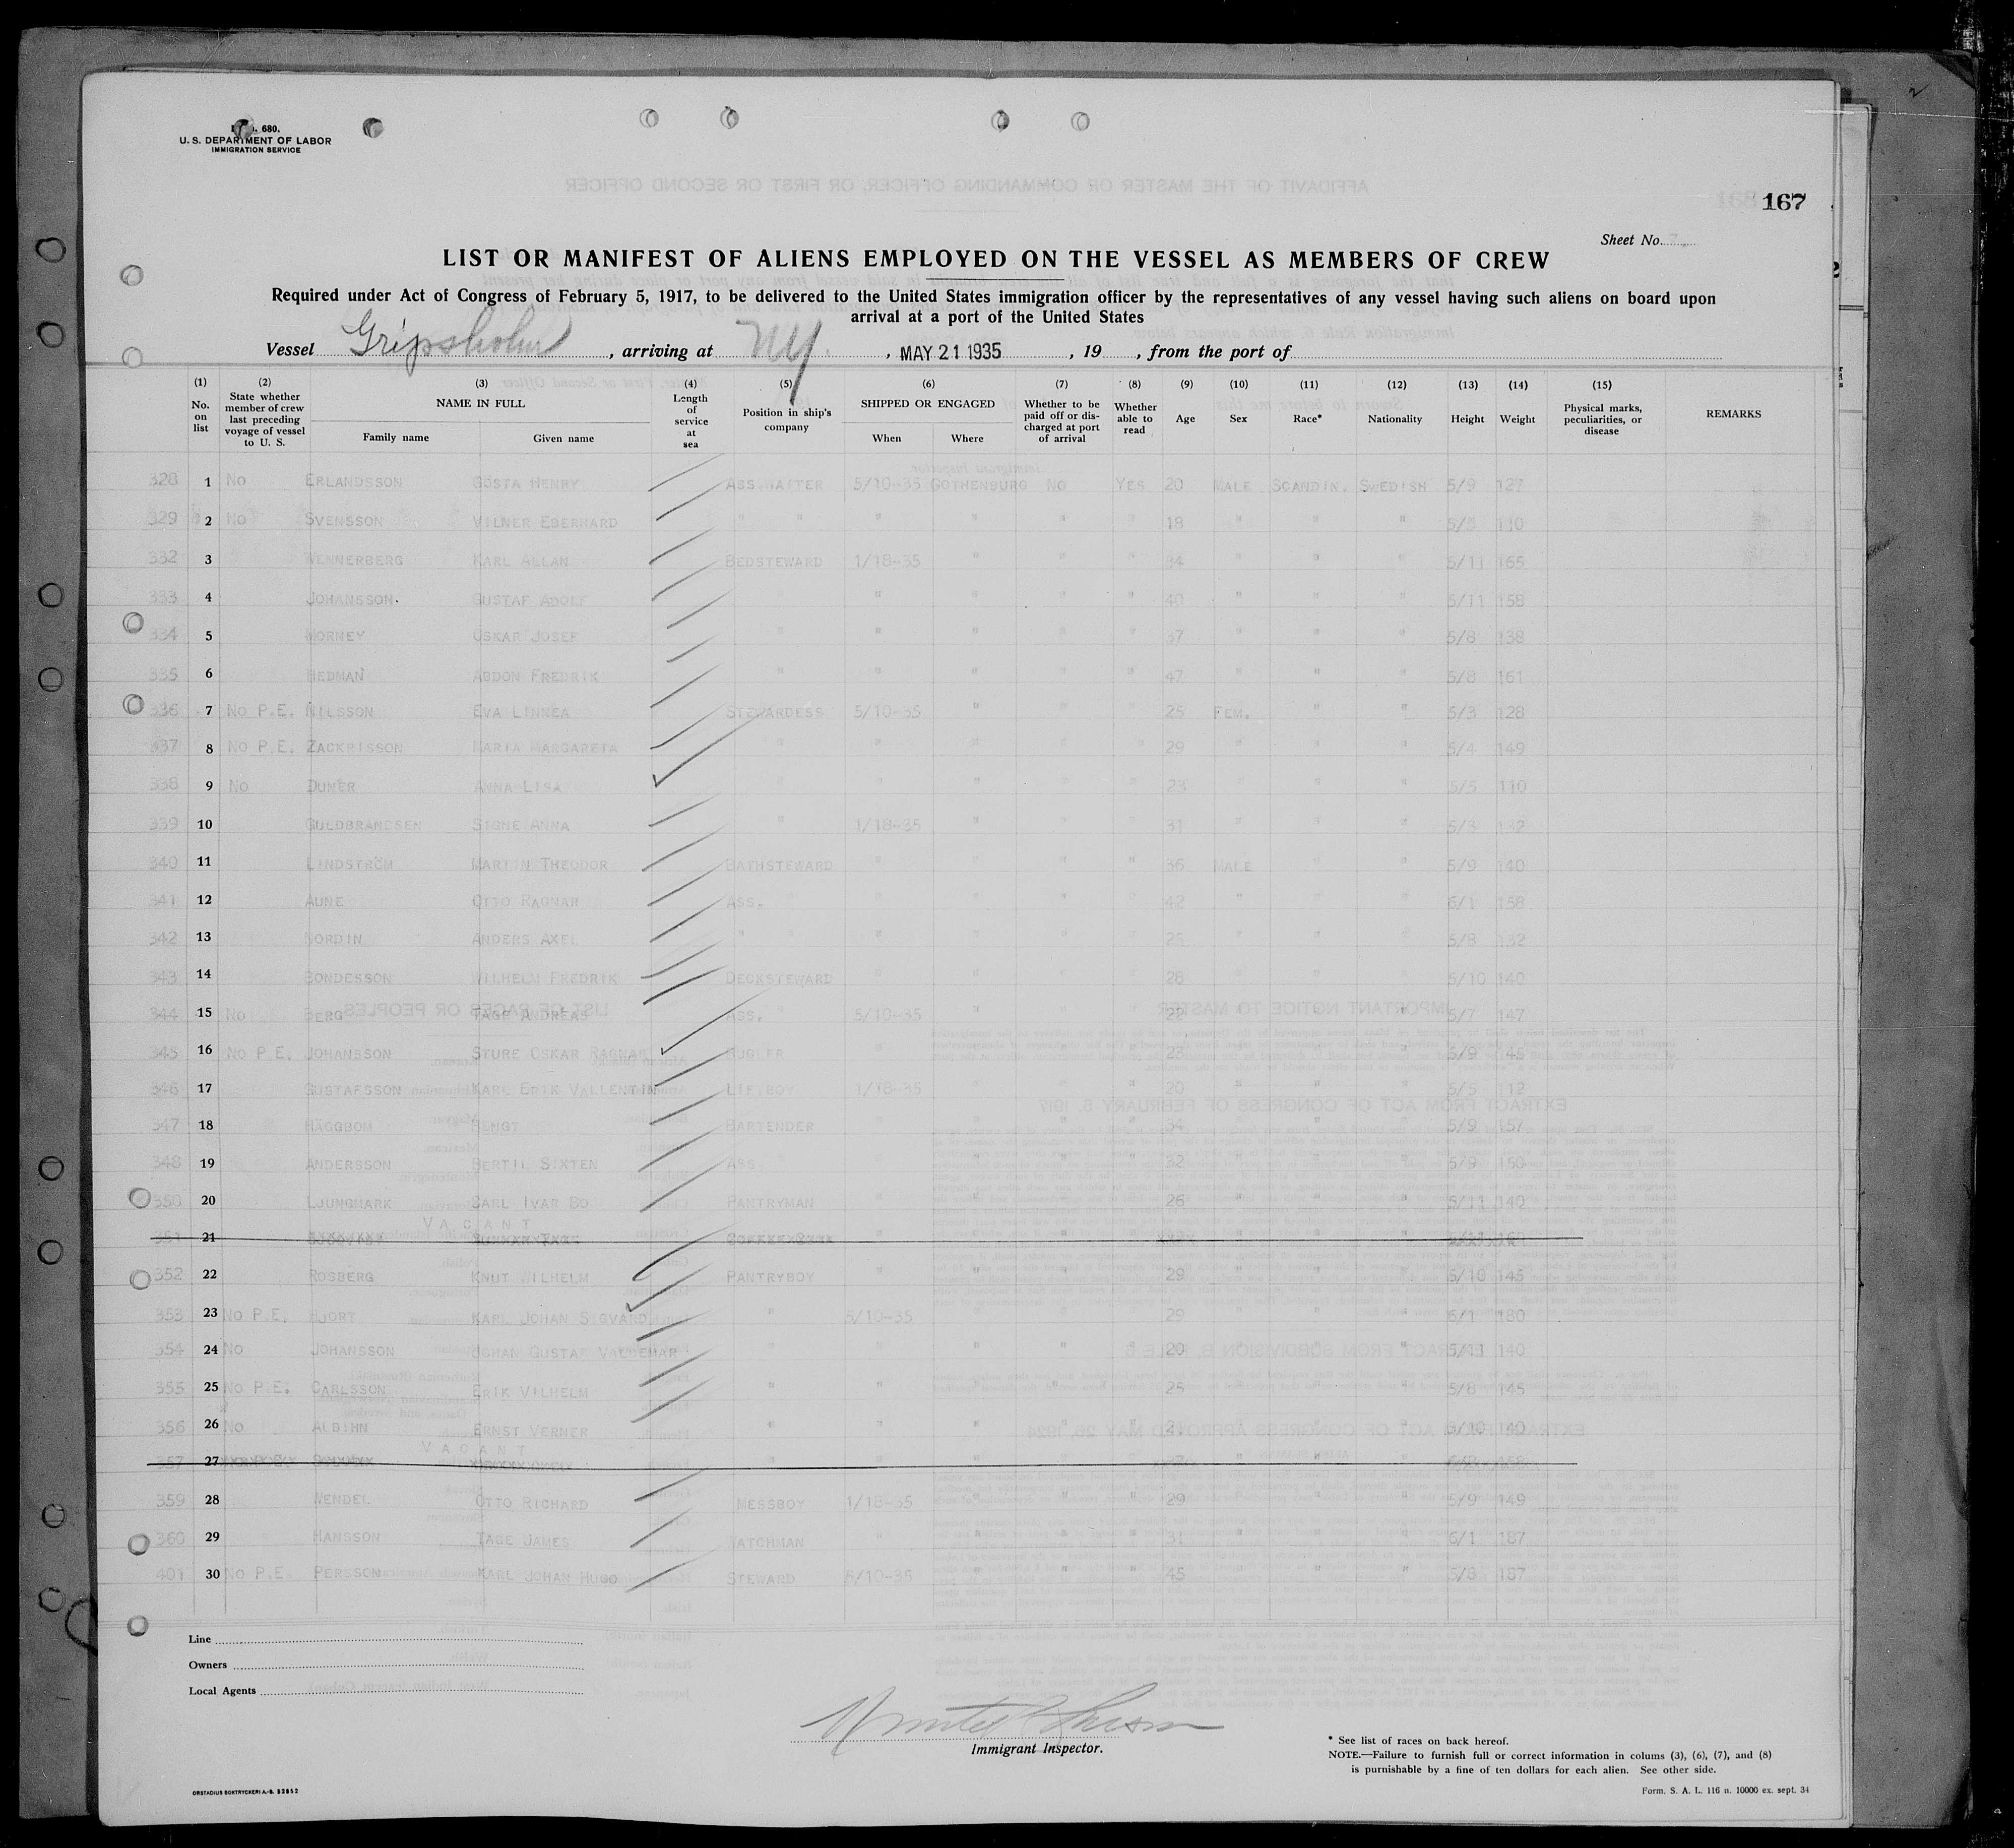 680.
U. S. DEPARTMENT OF LABOR
IMMIGRATION SERVICE
167
Sheet No.
LIST OR MANIFEST OF ALIENS EMPLOYED ON THE VESSEL AS MEMBERS OF CREW
Required under Act of Congress of February 5, 1917, to be delivered to the United States immigration officer by the representatives of any vessel having such aliens on board upon
arrival at a port of the United States
Vessel Gripsholm, arriving at NY., MAY 21 1935, 19 , from the port of
(1) No. on list (2) State whether member of crew last preceding voyage of vessel to U. S. (3) NAME IN FULL Family name Given name (4) Length of service at sea (5) Position in ship's company (6) SHIPPED OR ENGAGED When Where (7) Whether to be paid off or dis-charged at port of arrival (8) Whether able to read (9) Age (10) Sex (11) Race* (12) Nationality (13) Height (14) Weight (15) Physical marks, peculiarities, or disease REMARKS
328 1 No ERLANDSSON GÖSTA HENRY ASS.WAITER 5/10-35 GOTHENBURG NO YES 20 MALE SCANDIN. SWEDISH 5/9 127
329 2 No SVENSSON VILNER EBERHARD " " " " " " 18 " " " 5/5 110
332 3 WENNERBERG KARL ALLAN BEDSTEWARD 1/18-35 " " " 34 " " " 5/11 165
333 4 JOHANSSON. GUSTAF ADOLF " " " " " 40 " " " 5/11 158
334 5 MORNEY OSKAR JOSEF " " " " " 37 " " " 5/8 138
335 6 HEDMAN ABDON FREDRIK " " " " " 47 " " " 5/8 161
336 7 No P.E. NILSSON EVA LINNEA STEWARDESS 5/10-35 " " " 25 FEM. " " 5/3 128
337 8 No P.E. ZACKRISSON MARIA MARGARETA " " " " " 29 " " " 5/4 149
338 9 No DUNER ANNA LISA " " " " " 23 " " " 5/5 110
339 10 GULDBRANDSEN SIGNE ANNA " 1/18-35 " " " 31 " " " 5/3 132
340 11 LINDSTRÖM MARTIN THEODOR BATHSTEWARD " " " " 36 MALE " " 5/9 140
341 12 AUNE OTTO RAGNAR ASS. " " " " " 42 " " " 6/1 158
342 13 NORDIN ANDERS AXEL " " " " " " 25 " " " 5/8 132
343 14 BONDESSON WILHELM FREDRIK DECKSTEWARD " " " " 28 " " " 5/10 140
344 15 No BERG TAGE ANDREAS ASS. " 5/10-35 " " " 22 " " " 5/7 147
345 16 No P.E. JOHANSSON STURE OSKAR RAGNAR BUGLER " " " " 23 " " " 5/9 145
346 17 GUSTAFSSON KARL ERIK VALLENTIN LIFTBOY 1/18-35 " " " 20 " " " 5/5 112
347 18 HÄGGBOM BENGT BARTENDER " " " " 34 " " " 5/9 157
348 19 ANDERSSON BERTIL SIXTEN ASS " " " " " 32 " " " 5/9 150
350 20 LJUNGMARK CARL IVAR BO PANTRYMAN " " " " 26 " " " 5/11 140
351 21 VACANT
352 22 ROSBERG KNUT WILHELM PANTRYBOY " " " " 29 " " " 5/10 145
353 23 No P.E. HJORT KARL JOHAN SIGVARD " 5/10-35 " " " 29 " " " 6/1 180
354 24 No JOHANSSON JOHAN GUSTAF VALDEMAR " " " " " 20 " " " 5/11 140
355 25 No P.E. CARLSSON ERIK VILHELM " " " " " 25 " " " 5/8 145
356 26 No ALBIHN ERNST VERNER " " " " " " " " 5/10 140
357 27 VACANT
359 28 WENDEL OTTO RICHARD MESSBOY 1/18-35 " " " 29 " " " 5/9 149
360 29 HANSSON TAGE JAMES WATCHMAN " " " " 31 " " " 6/1 187
401 30 No P.E. PERSSON KARL JOHAN HUGO STEWARD 5/10-35 " " " 45 " " " 5/8 187
Line
Owners
Local Agents
Immigrant Inspector.
* See list of races on back hereof.
NOTE.—Failure to furnish full or correct information in colums (3), (6), (7), and (8)
is punishable by a fine of ten dollars for each alien. See other side.
ORSTADIUS BOKTRYCKERI A.-B. 52852
Form. S. A. L. 116 n. 10000 ex. sept. 34